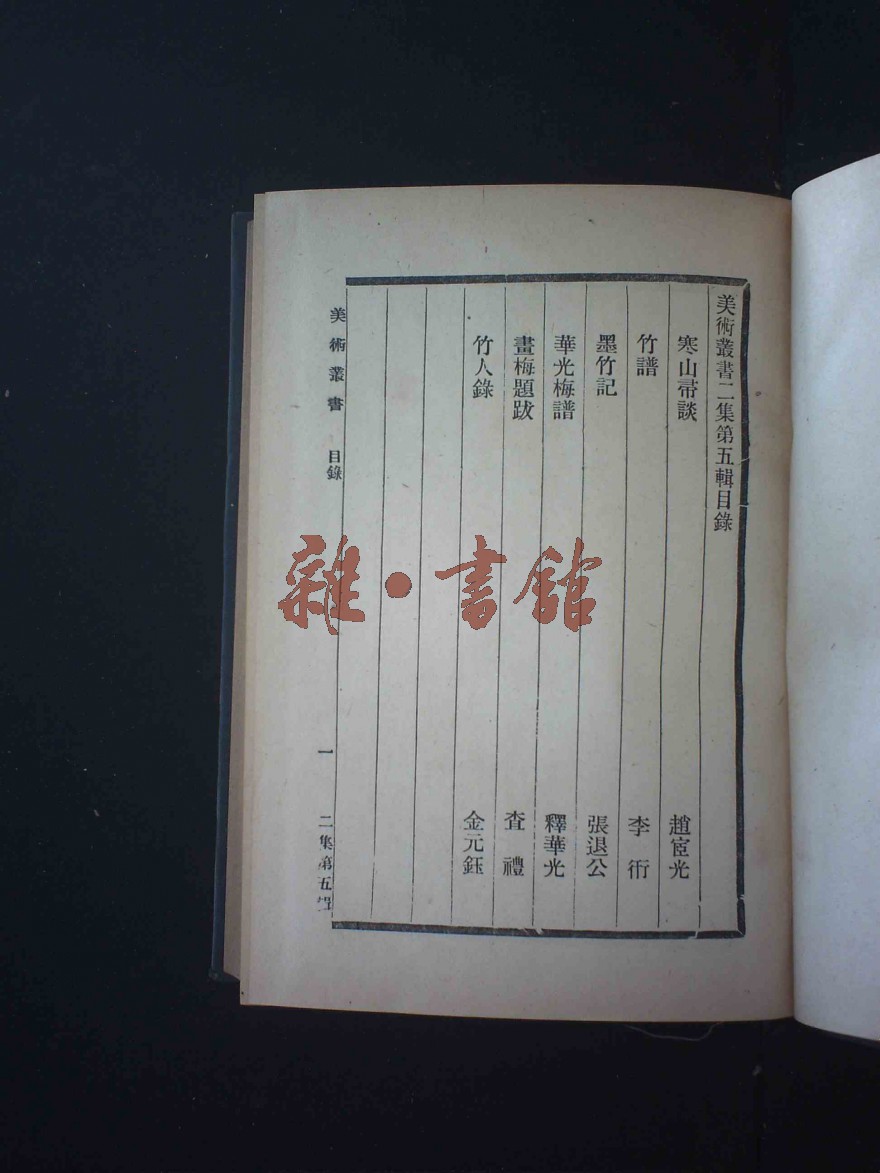 美術叢書二集第五輯目錄
寒山帚談 趙宧光
竹譜 李衎
墨竹記 張退公
華光梅譜 釋華光
畫梅題跋 查禮
竹人錄 金元鈺
美術叢書 目錄 一 二集第五輯
雜·書館